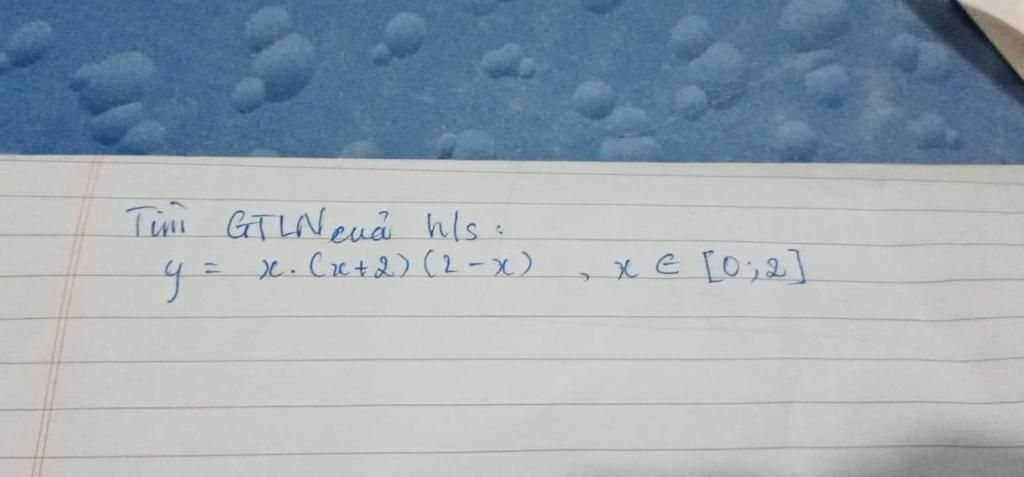 Tìm GTLN của h/s:
y = x.(x+2)(2-x) , x ∈ [0;2]